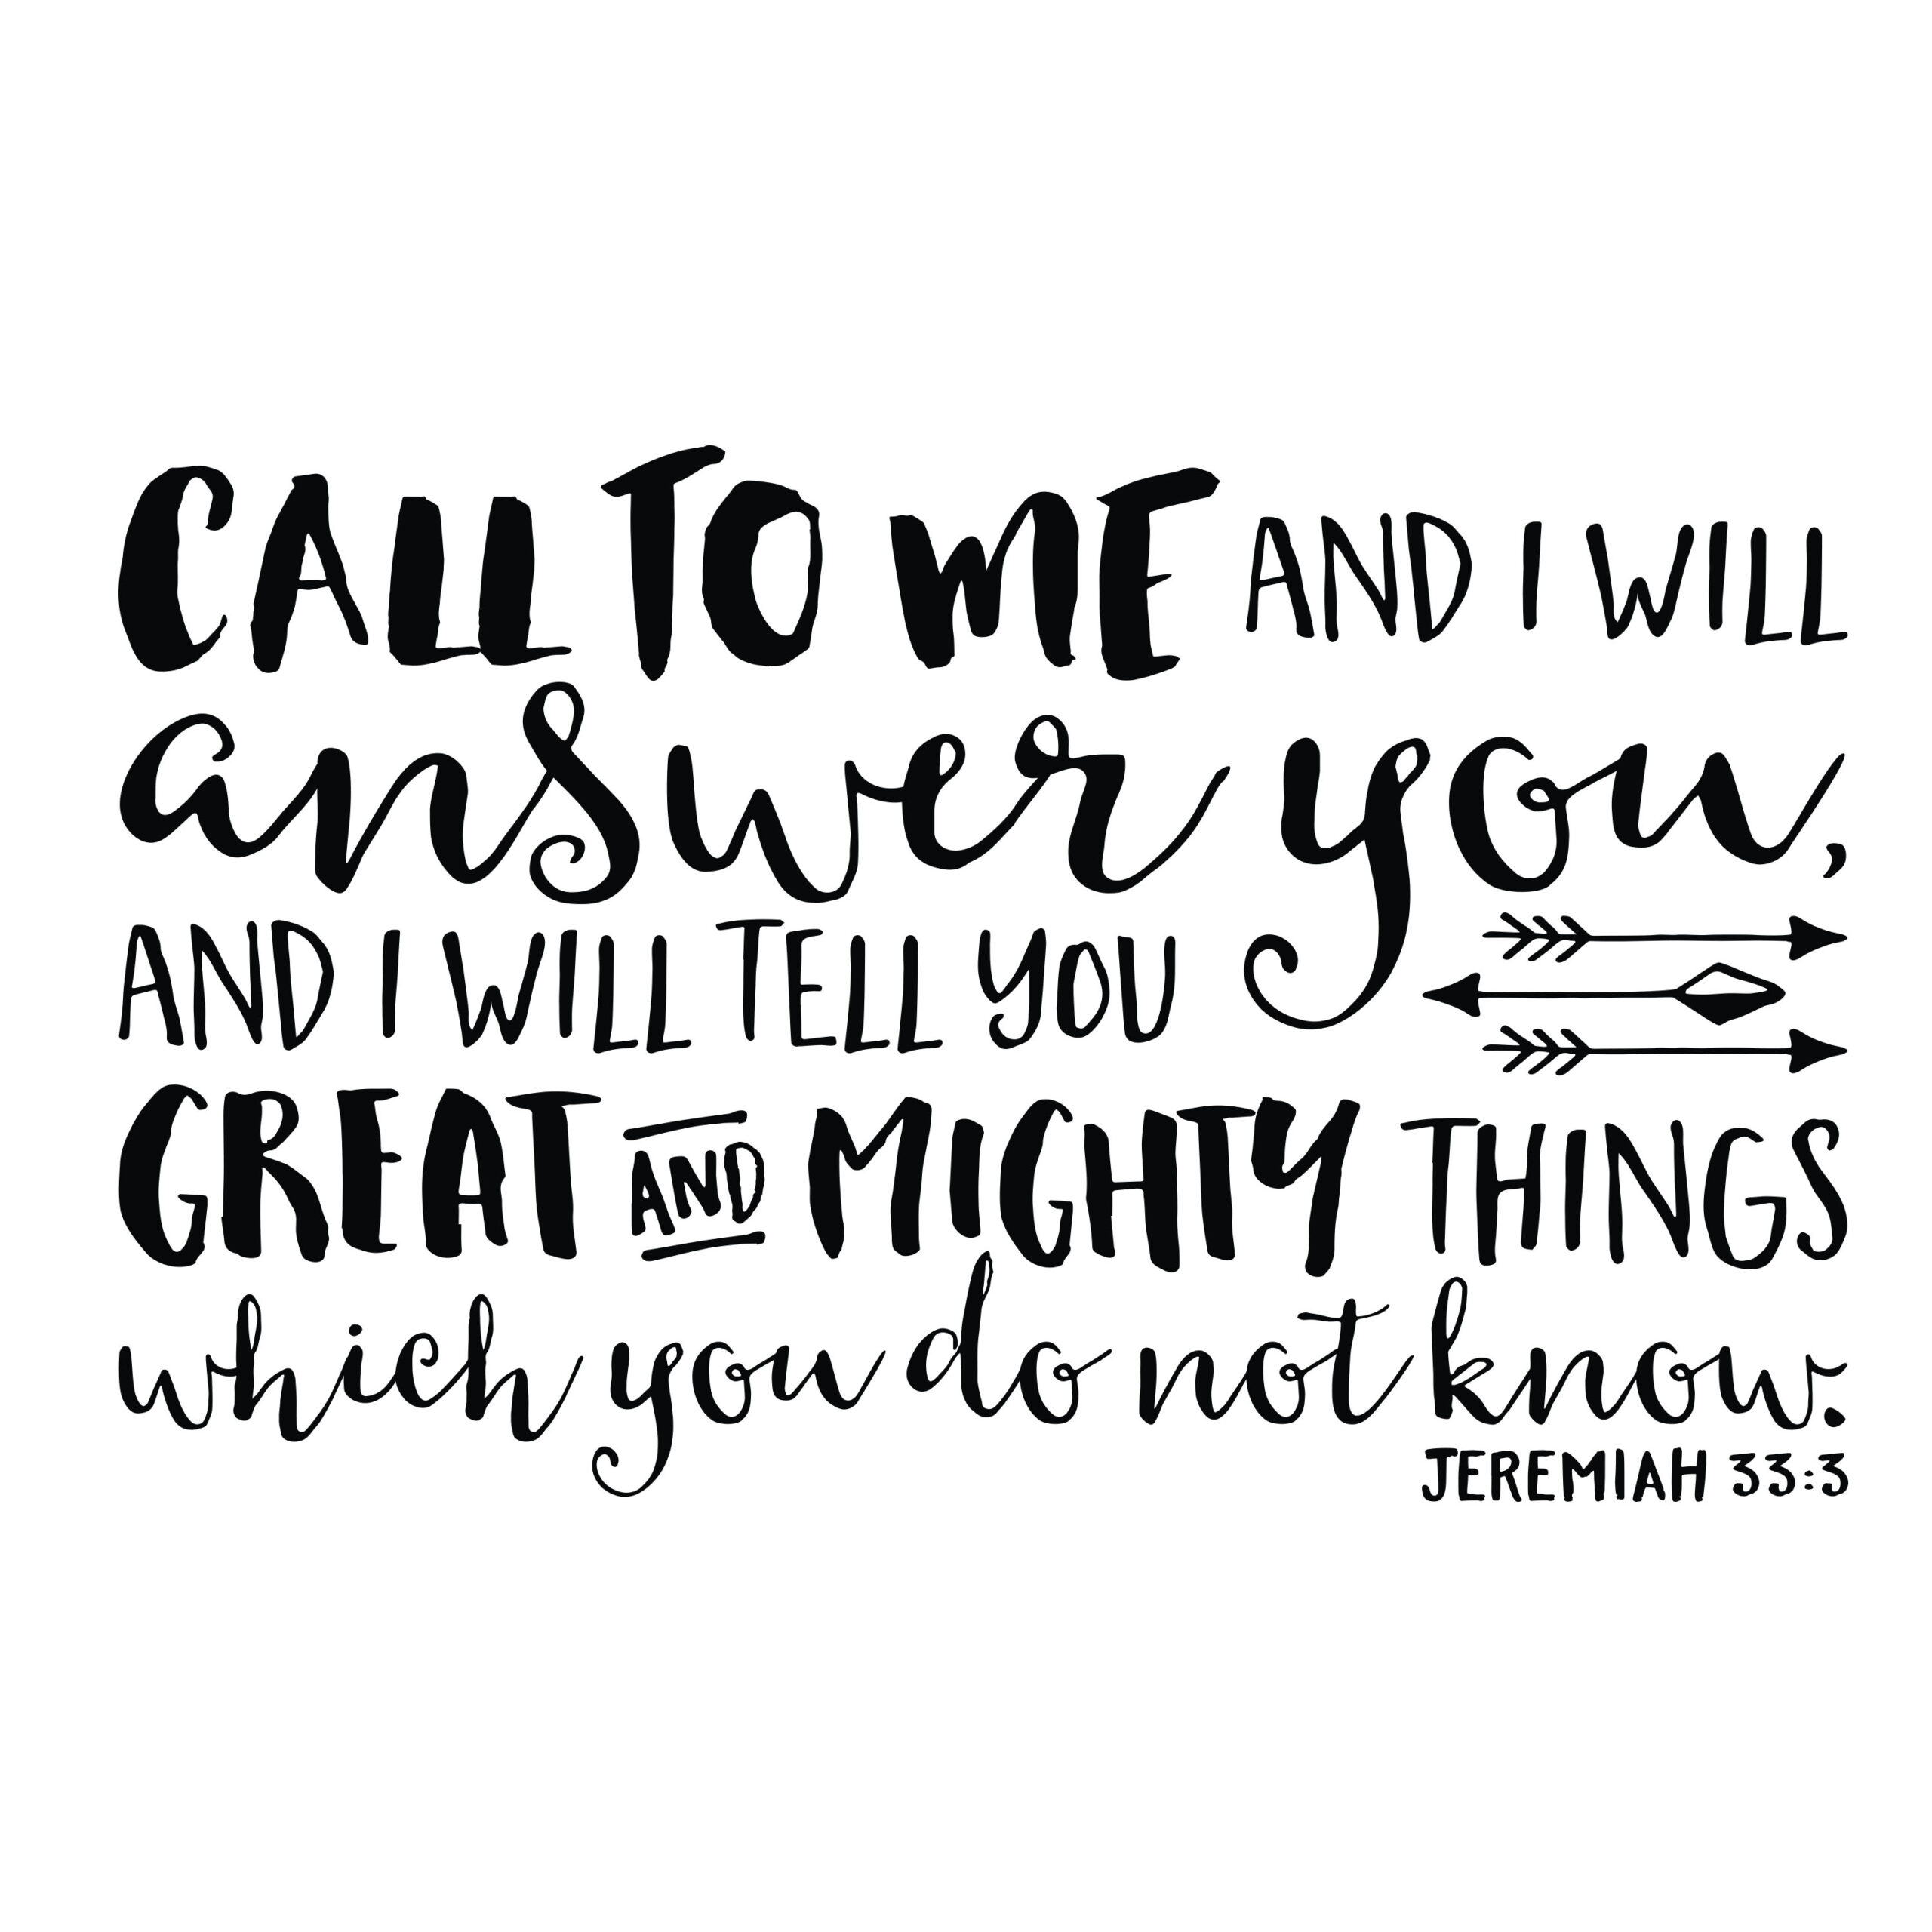 CALL TO ME AND I WILL
answer you,
AND I WILL TELL YOU
GREAT AND MIGHTY THINGS
which you do not know.
JEREMIAH 33:3